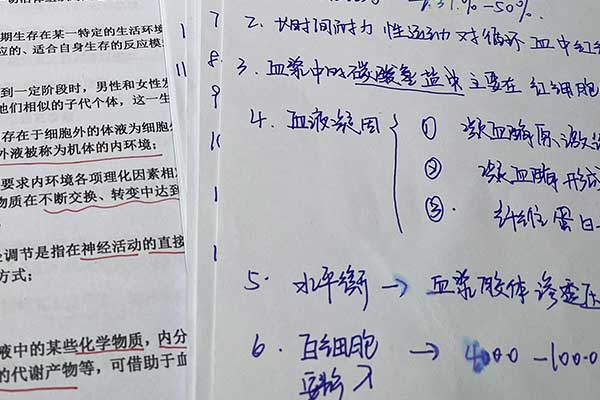 期生存在某一特定的生活环境
应的、适合自身生存的反应模
到一定阶段时，男性和女性发
他们相似的子代个体，这一生
存在于细胞外的体液为细胞外
外液被称为机体的内环境；
要求内环境各项理化因素相
物质在不断交换、转变中达到
调节是指在神经活动的直接
方式；
液中的某些化学物质，内分
的代谢产物等，可借助于血
7
8
9
1
11
-50%.
2. 长时间耐力性运动对循环血中红
3. 血浆中的碳酸氢盐来主要在红细胞
4. 血液凝固
① 凝血酶原激活
② 凝血酶形成
③. 纤维蛋白
5. 水平衡 → 血浆胶体渗透压
6. 白细胞 → 4000-1000